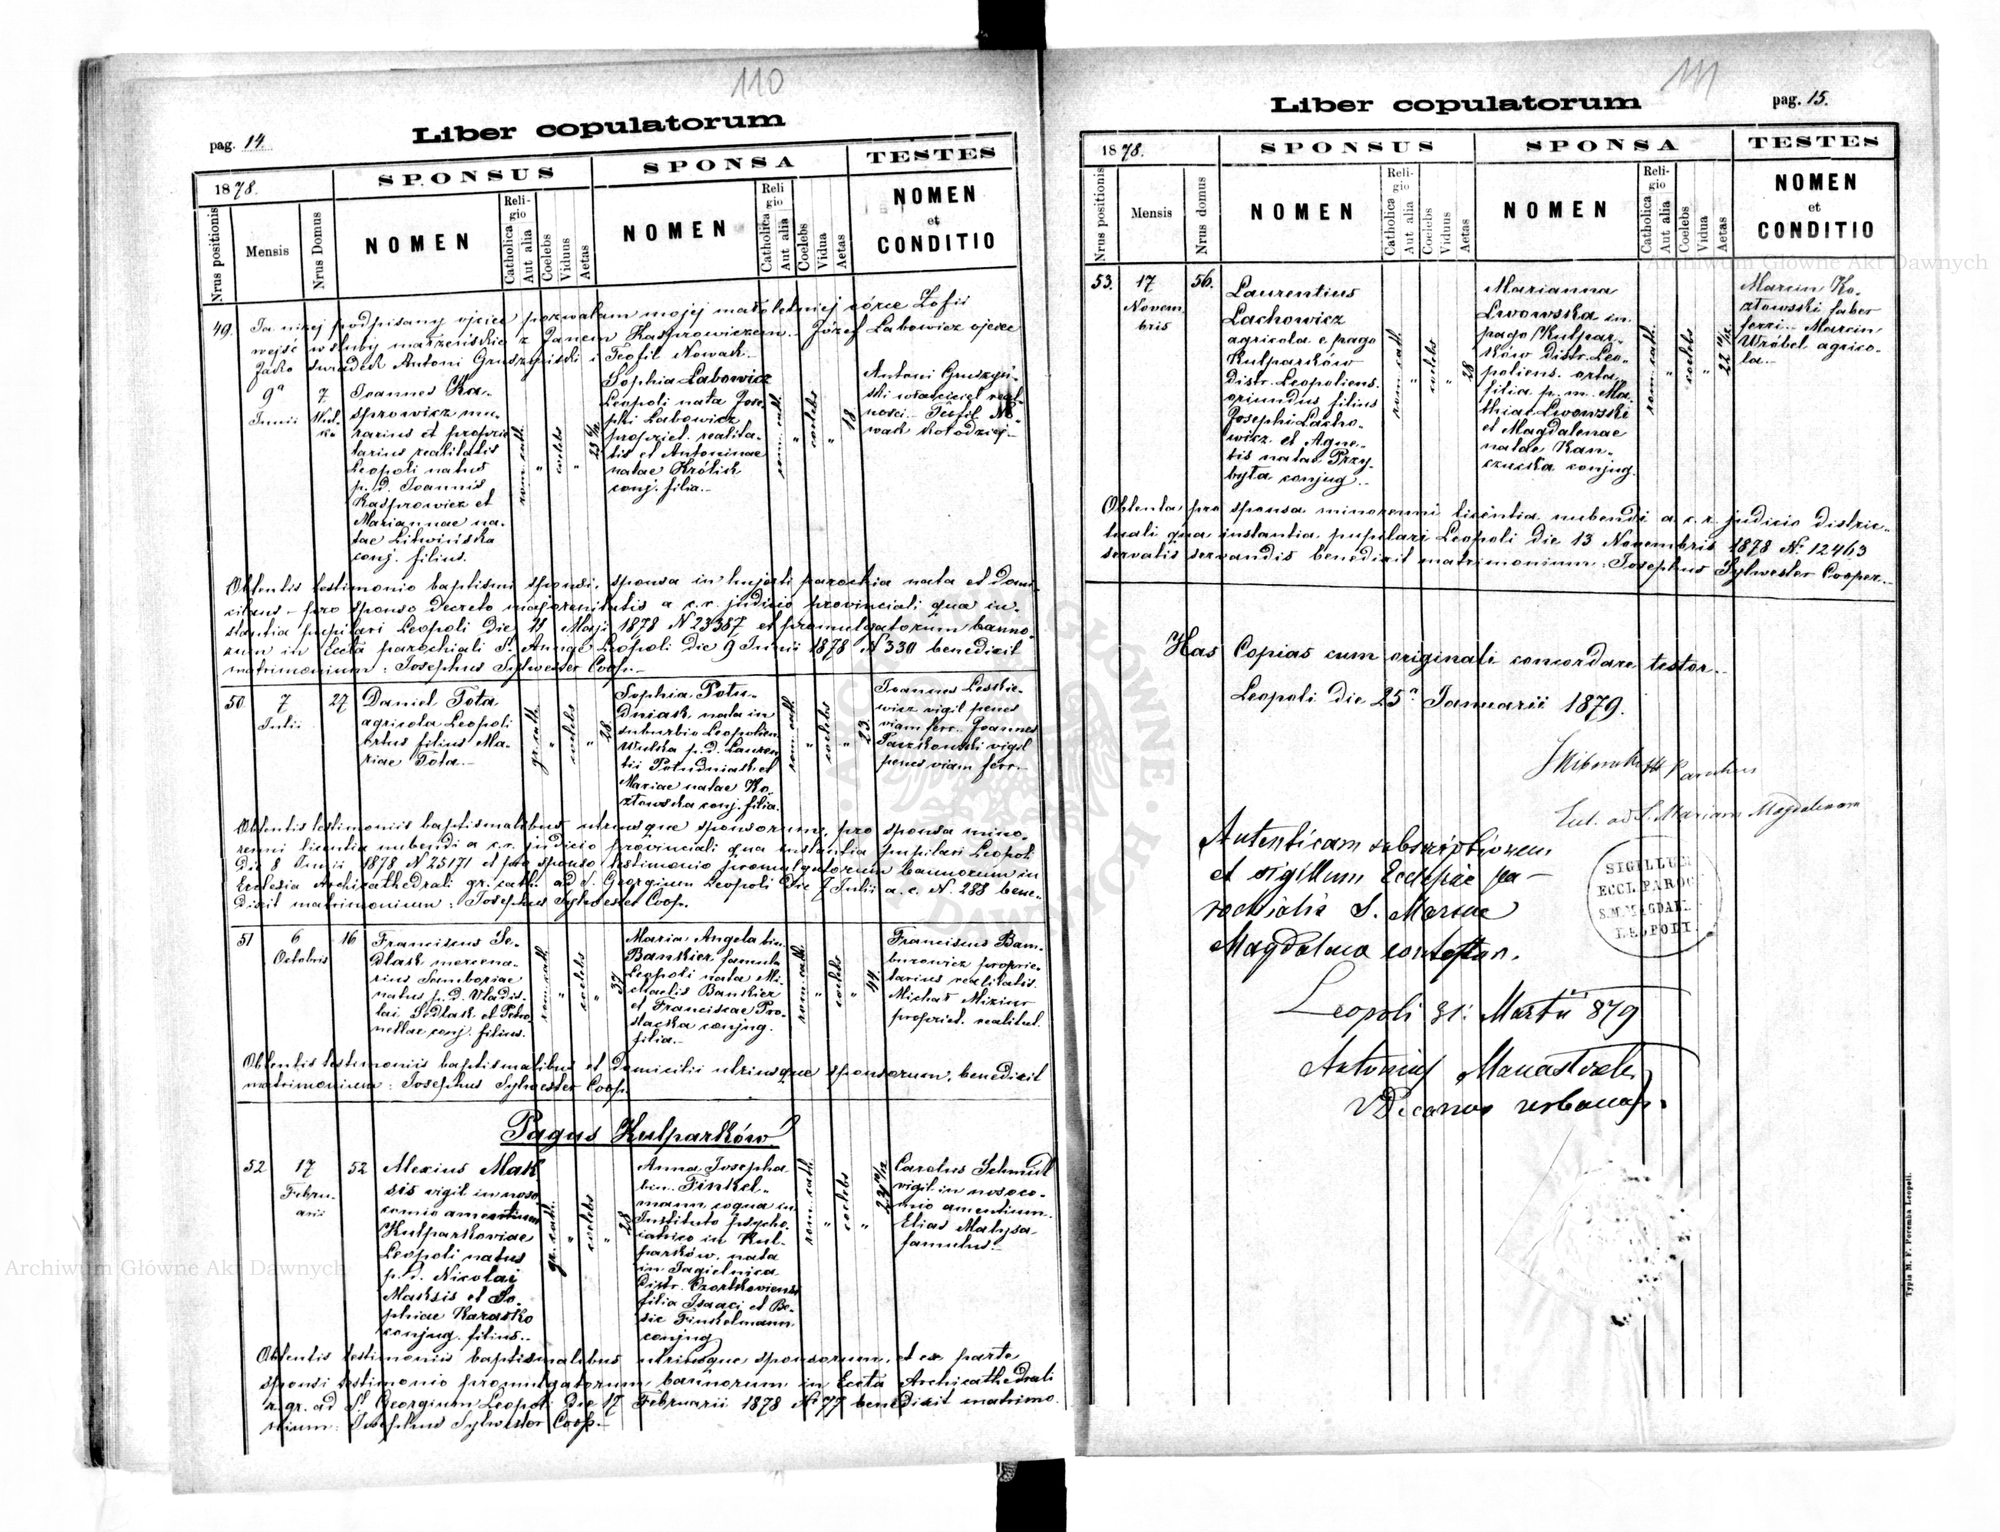 110
pag. 14.
Liber copulatorum
1878.
SPONSUS
SPONSA
TESTES
Nrus positionis
Mensis
Nrus Domus
NOMEN
Religio
Catholica
Aut alia
Coelebs
Viduus
Aetas
NOMEN
Religio
Catholica
Aut alia
Coelebs
Vidua
Aetas
NOMEN
et
CONDITIO
49. Ja niżej podpisany ojciec pozwalam mojej małoletniej córce Zofii
wejść w śluby małżeńskie z Janem Kasprowiczem. Józef Labowicz ojciec
Jako świadek Antoni Gruszyński i Teofil Nowak.
9a
Junii
7
Wul-
ka
Joannes Ka-
sprowicz mu-
rarius et proprie
tarius realitatis
Leopoli natus
p. d. Joannis
Kasprowicz et
Mariannae na-
tae Litwińska
conj. filius.
rom. cath.
"
coelebs
"
Sophia Labowicz
Leopoli nata Jose-
phi Labowicz
propriet. realita-
tis et Antoninae
natae Królik
conj. filia.
rom. cath.
"
coelebs
"
18
Antoni Gruszyń-
ski właściciel real-
ności. Teofil No-
wak kołodziej.
Obtentis testimonio baptismi sponsi, sponsa in hujati parochia nata et domi-
cilians – pro sponso decreto majorenitatis a c. r. judicio provinciali qua in-
stantia pupilari Leopoli die 21 Maji 1878 N 23387 et promulgatorum banno-
rum in Eccta parochiali S. Annae Leopoli die 9 Junii 1878 N 330 benedixit
matrimonium: Josephus Sylwester Coop.
50.
7
Julii
27
Daniel Tota
agricola Leopoli
ortus filius Ma-
riae Tota.
gr. cath.
"
coelebs
"
28
Sophia Potu-
dniak nata in
suburbio Leopolien
Wulka p. d. Lauren
tii Potudniak et
Mariae natae Ko-
złowska conj. filia.
rom. cath.
"
coelebs
"
23.
Joannes Leskie-
wicz vigil penes
viam ferr. Joannes
Paczkowski vigil
penes viam ferr.
Obtentis testimoniis baptismalibus utriusque sponsorum, pro sponsa mino-
renni licentia nubendi a c. r. judicio provinciali qua instantia pupilari Leopol
die 8 Junii 1878 N 25171 et pro sponso testimonio promulgatorum bannorum in
Ecclesia Archicathedrali gr. cath. ad S. Georgium Leopoli die 7 Julii a. c. N. 288 bene-
dixit matrimonium: Josephus Sylwester Coop.
51
6
Octobris
16
Franciscus Se-
dlak mercena-
rius Samboriae
natus p. d. Vladis-
lai Sedlak et Petro-
nellae conj. filius.
rom. cath.
"
coelebs
"
37
Maria Angela bin.
Bankiez famula
Leopoli nata Mi-
chaelis Bankiez
et Franciscae Pro-
stacka conjug.
filia.
rom. cath.
"
coelebs
"
44.
Franciscus Bam-
burowicz proprie-
tarius realitatis
Michał Mizius
propriet. realitat.
Obtentis testimoniis baptismalibus et domicilii utriusque sponsorum, benedixit
matrimonium: Josephus Sylwester Coop.
Pagus Kulparków
52
17
Febru-
arii
52
Alexius Mak
sis vigil in noso-
comio amentium
Kulparkoviae
Leopoli natus
p. d. Nicolai
Maksis et So-
phiae Karasko
conjug. filius.
gr. cath.
"
coelebs
"
28
Anna Josepha
bin. Finkel-
mann coqua in
Instituto psycho-
iatrico in Kul-
parków. nata
in Jagielnica
Distr. Czortkoviensi
filia Isaaci et Be-
sie Finkelmann
conjug
rom. cath.
"
coelebs
"
Carolus Schmidt
vigil in nosoco-
mio amentium.
Elias Matysa
famulus.
Obtentis testimoniis baptismalibus utriusque sponsorum, et ex parte
sponsi testimonio promulgatorum bannorum in Eccta Archicathedrali
r. gr. ad S. Georgium Leopoli die 17 Februarii 1878 N 77 benedixit matrimo-
nium: Josephus Sylwester Coop.
111
Liber copulatorum
pag. 15.
1878.
SPONSUS
SPONSA
TESTES
Nrus positionis
Mensis
Nrus domus
NOMEN
Religio
Catholica
Aut alia
Coelebs
Viduus
Aetas
NOMEN
Religio
Catholica
Aut alia
Coelebs
Vidua
Aetas
NOMEN
et
CONDITIO
53.
17
Novem
bris
56.
Laurentius
Lachowicz
agricola e pago
Kulparków
Distr. Leopoliens.
oriundus filius
Josephi Lacho-
wicz et Agne-
tis natae Przy-
była conjug.
rom. cath.
"
coelebs
"
28
Marianna
Lwowska in
pago Kulpar-
ków distr. Leo-
poliens. orta
filia p. m. Ma-
thiae Lwowski
et Magdalenae
natae Kan-
czucka conjug.
rom. cath.
"
coelebs
"
Marcin Ko-
złowski faber
ferri. Marcin
Wróbel agrico-
la.
Obtenta pro sponsa minorenni licentia nubendi a c. r. judicio distric-
tuali qua instantia pupulari Leopoli die 13 Novembris 1878 N: 12463
servatis servandis benedixit matrimonium: Josephus Sylwester Cooper.
Has Copias cum originali concordare testor.
Leopoli die 25a Januarii 1879.
Parochus
Lat. ad S. Mariam Magdalenam
Autenticam subscriptionem
et sigillum Ecclesiae pa-
rochialis S. Mariae
Magdalena contestor.
SIGILLUM
ECCL. PAROC.
S.M.MAGDAL.
LEOPOLI.
Leopoli 31: Martii 879
Antonius Manastyrski
Decanus urbanus.
Typis M. F. Poremba Leopoli.
Archiwum Główne Akt Dawnych
Archiwum Główne Akt Dawnych
ARCHIWUM GŁÓWNE AKT DAWNYCH